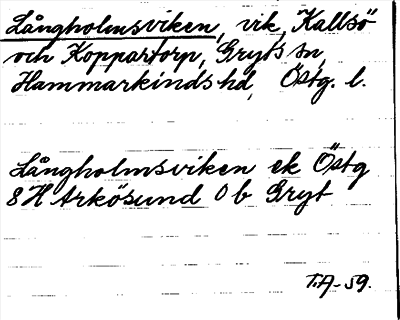 Långholmsviken, vik, Kallsö
och Koppartorp, Gryts sn,
Hammarkinds hd, Östg. l.
Långholmsviken ek Östg
8H Arkösund 0b Gryt
T.A-59.